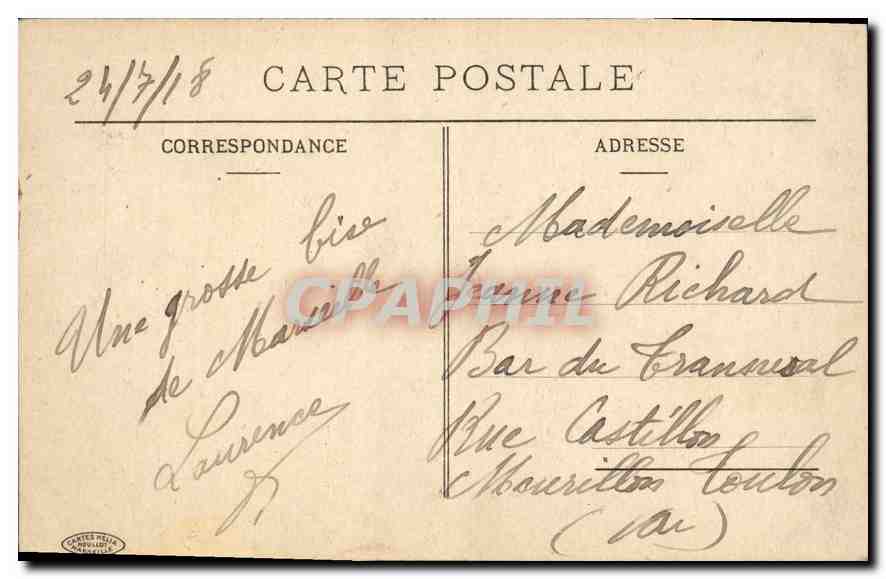 24/7/18
CARTE POSTALE
CORRESPONDANCE
ADRESSE
Une grosse bise
de Marseille
Laurence
Mademoiselle
Jeanne Richard
Bar du Transval
Rue Castillon
Mourillon Toulon
(Var)
CPAPHIL
CARTES HELIA
MOULLOT
MARSEILLE